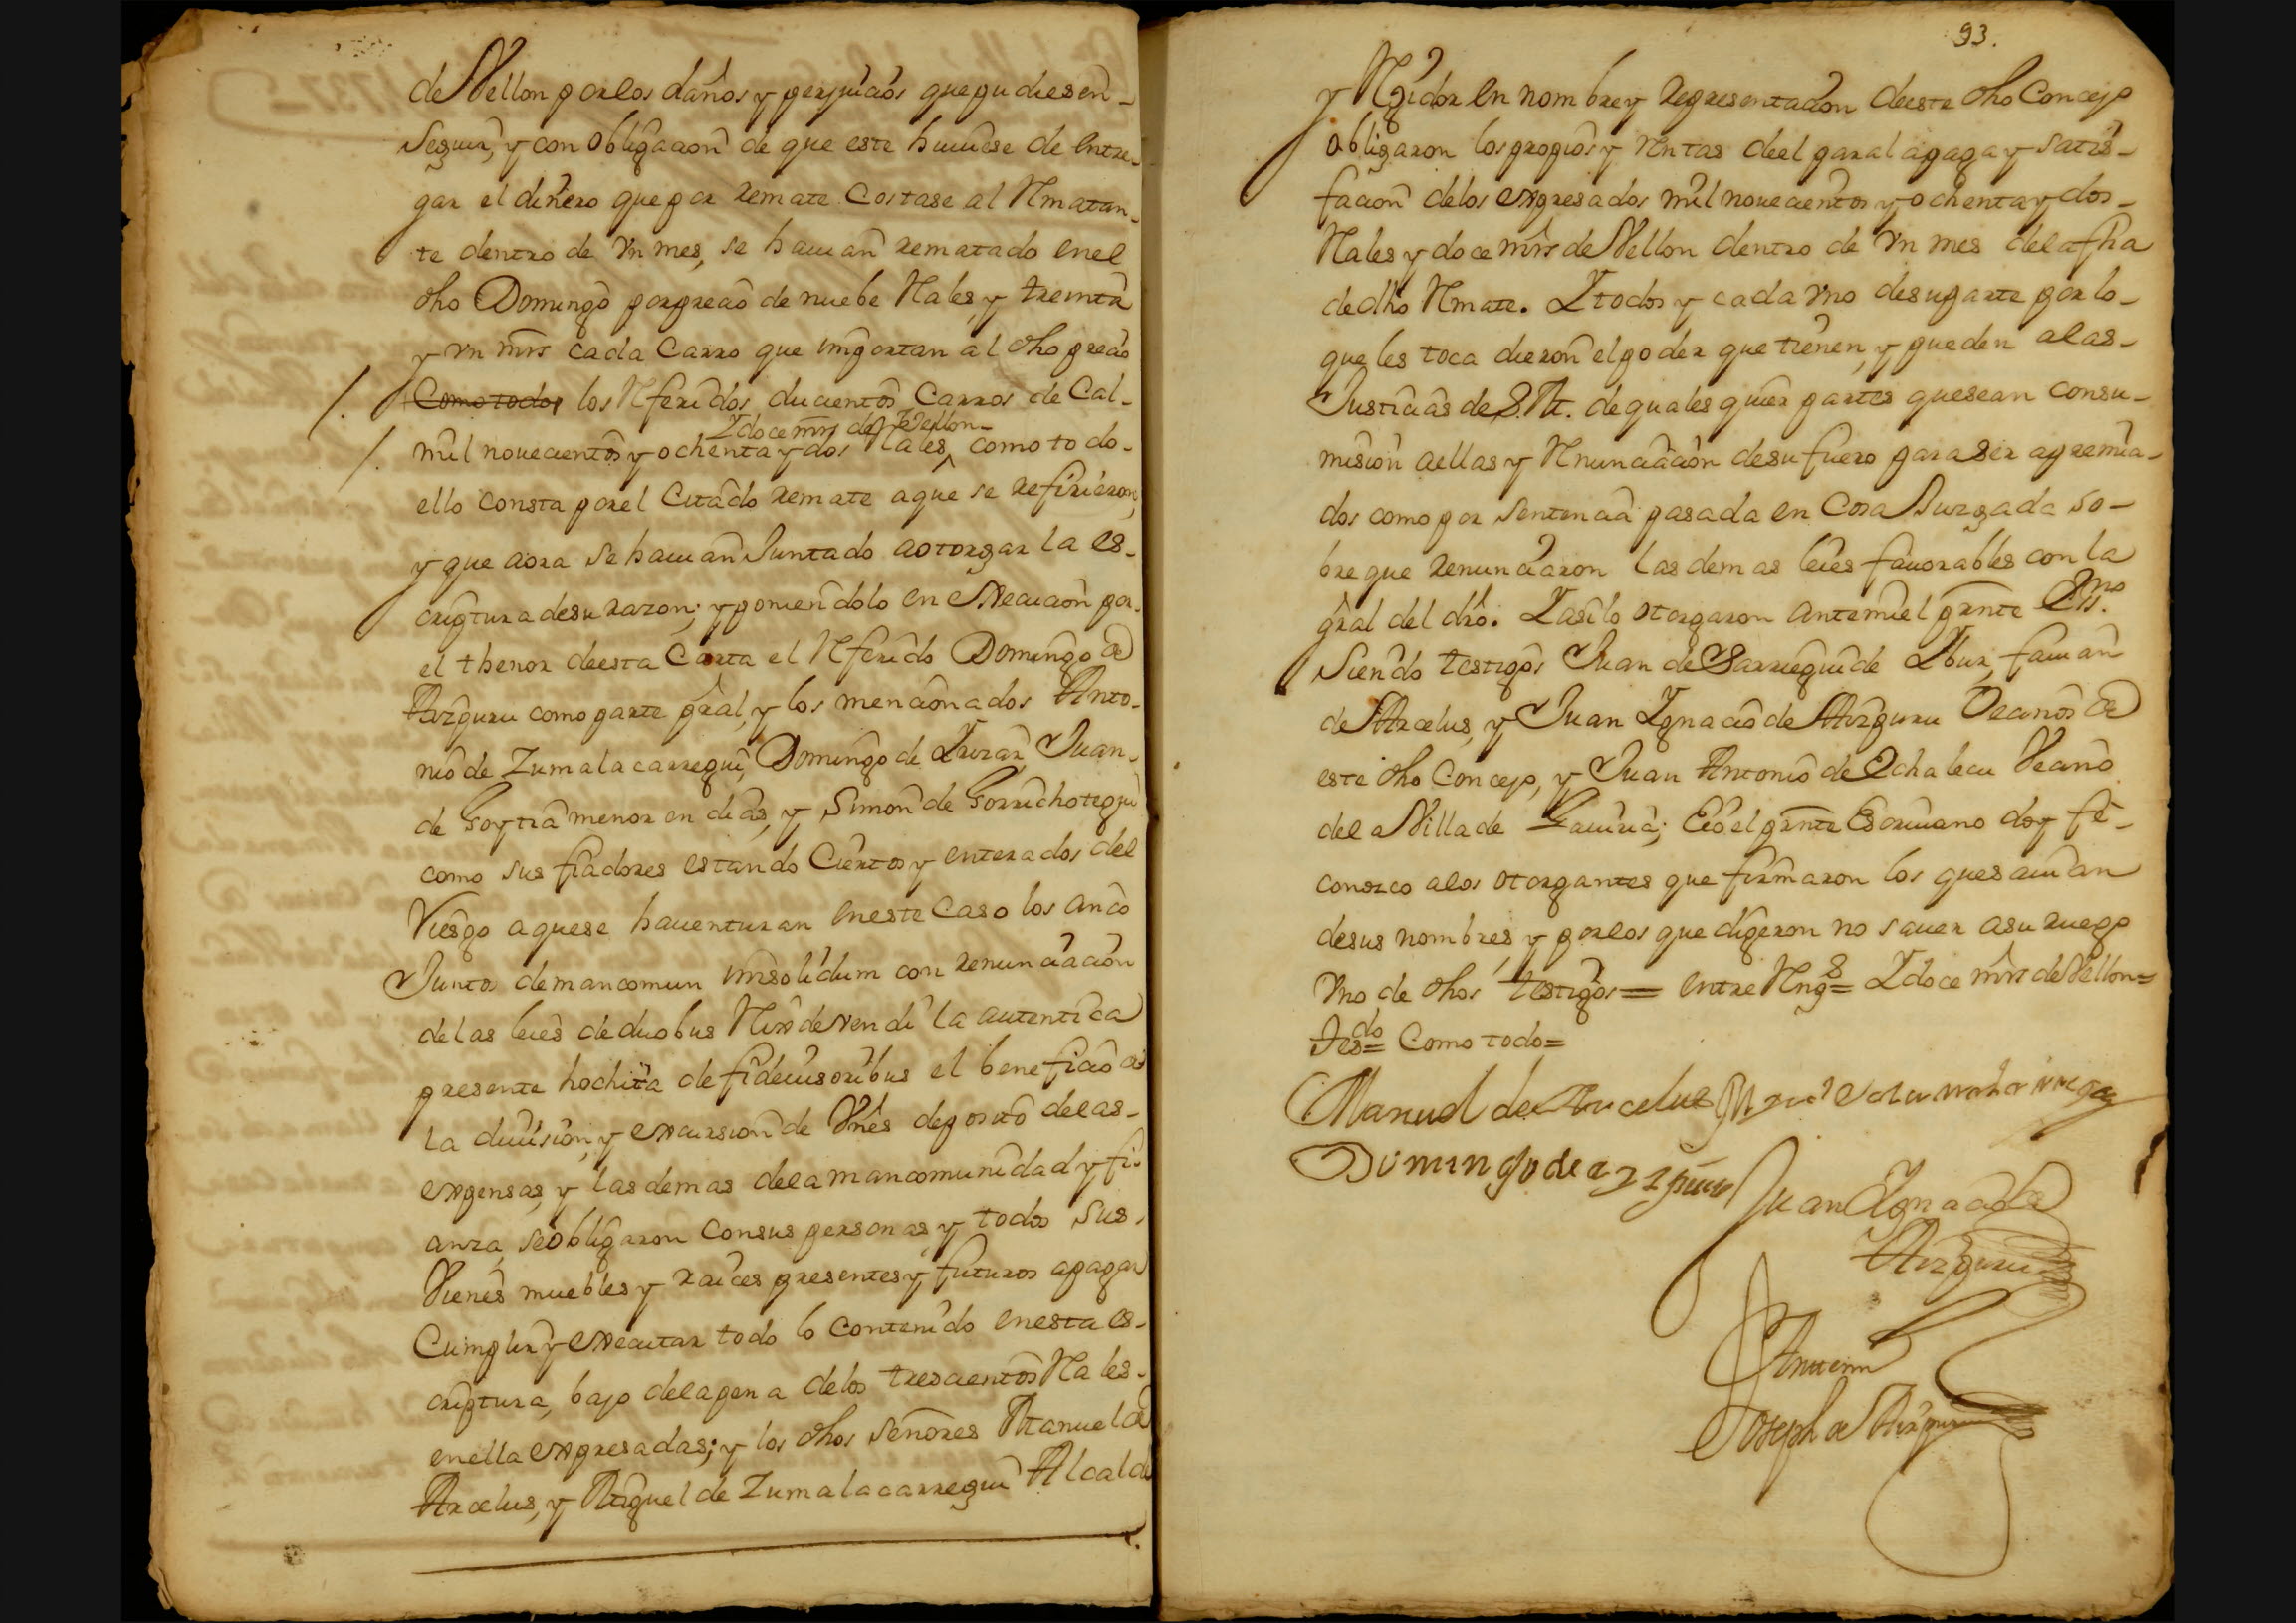 de Vellon por los daños y perjuicios que pudiesen
seguir, y con obligacion de que este huuiese de entre-
gar el dinero que por remate costase al Rematan-
te dentro de vn mes, se hauian rematado en el
dho Domingo por precio de nuebe Rales, y treinta
y vn mrs cada Carro que importan al dho precio
Como todos los Referidos ducientos Carros de Cal-
Y doce mrs de Vellon
mil nouecientos y ochenta y dos Rales, como todo-
ello consta por el citado remate a que se refirieron,
y que aora se hauian Juntado a otorgar la es-
criptura de su razon; y poniendolo en execucion por
el thenor de esta Carta el Referido Domingo de
Aizguru como parte pral, y los mencionados Anto-
nio de Zumalacarregui, Domingo de Yurar, Juan-
de Goytia menor en dias, y Simon de Gorrichotegui
como sus fiadores estando ciertos y enterados del
Riesgo a que se hauenturan en este caso los cinco
Juntos de mancomun insolidum con renunciacion
de las leies de duobus Rex devendi la autentica
presente hochita de fideiusoribus el beneficio de
la diuision, y excursion de Vnes deposito de las-
expensas, y las demas de la mancomunidad y fi-
anza, se obligaron con sus personas, y todos sus,
Vienes muebles y raices presentes y futuros a pagar
Cumplir y executar todo lo contenido en esta es-
criptura, bajo de la pena de los trescientos Rales-
en ella expresadas; y los dhos señores Manuel de
Arcelus, y Miguel de Zumalacarregui Alcalde
93.
y Rexidor en nombre y representacion de este dho Concejo
obligaron los propios y Rentas de el para la paga y satis-
facion de los expresados mil nouecientos y ochenta y dos-
Rales y doce mrs de Vellon dentro de vn mes de la fha
de dho Remate. Y todos y cada vno de su parte por lo-
que les toca dieron el poder que tienen, y pueden a las-
Justicias de S. M. de quales quier partes que sean con su-
mision a ellas y Renunciacion de su fuero para ser apremia-
dos como por sentencia pasada en Cosa Juzgada so-
bre que renunciaron las demas leies fauorables con la
gral del dro. Y asi lo otorgaron ante mi el prnte Essno.
siendo testigos Juan de Sarriegui de Ybur, fauian
de Arcelus, y Juan Ygnacio de Aizguru Vecinos de
este dho Concejo, y Juan Antonio de Echalecu Vecino
de la Villa de Gauiria; E io el prnte Escriuano doy fe-
conozco a los otorgantes que firmaron los que sauian
de sus nombres, y por los que digeron no sauer a su ruego
vno de dhos testigos = entre Rengs = Y doce mrs de Vellon =
Tesdo = Como todo =
Manuel de Arcelus
Domingo de
Juan Ygnacio de
Aizguru
Ante mi
Joseph de Aizguru